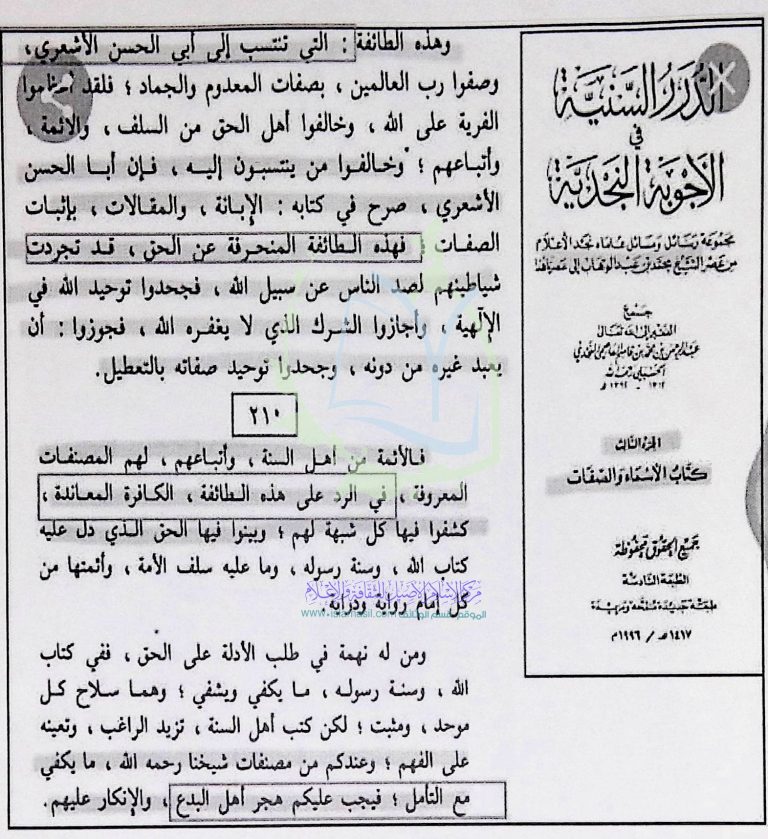 وهذه الطائفة : التي تنتسب إلى أبي الحسن الأشعري ،
وصفوا رب العالمين ، بصفات المعدوم والجماد ؛ فلقد
الفرية على الله ، وخالفوا أهل الحق من السلف ، والائمة ،
وأتباعهم ؛ وخالفوا من ينتسبون إليه ، فإن أبا الحسن
الأشعري ، صرح في كتابه : الإبانة ، والمقالات ، بإثبات
الصفات ؛ فهذه الطائفة المنحرفة عن الحق ، قد تجردت
شياطينهم لصد الناس عن سبيل الله ، فجحدوا توحيد الله في
الإلهية ، وأجازوا الشرك الذي لا يغفره الله ، فجوزوا : أن
يعبد غيره من دونه ، وجحدوا توحيد صفاته بالتعطيل .
٢١٠
فالأئمة من أهل السنة ، وأتباعهم ، لهم المصنفات
المعروفة ، في الرد على هذه الطائفة ، الكافرة المعاندة ،
كشفوا فيها كل شبهة لهم ؛ وبينوا فيها الحق الذي دل عليه
كتاب الله ، وسنة رسوله ، وما عليه سلف الأمة ، وأئمتها من
كل إمام رواية ودراية .
مركز الإسلام الأصيل للثقافة والإعلام
ومن له نهمة في طلب الأدلة على الحق ، ففي كتاب
الله ، وسنة رسوله ، ما يكفي ويشفي ؛ وهما سلاح كل
موحد ، ومثبت ؛ لكن كتب أهل السنة ، تزيد الراغب ، وتعينه
على الفهم ؛ وعندكم من مصنفات شيخنا رحمه الله ، ما يكفي
مع التأمل ؛ فيجب عليكم هجر أهل البدع ، والإنكار عليهم .
الدرر السنية
في
الأجوبة النجدية
مجموعة رسائل ومسائل علماء نجد الأعلام
من عصر الشيخ محمد بن عبد الوهاب إلى عصرنا هذا
جمع
الفقير إلى الله تعالى
عبد الرحمن بن محمد بن قاسم العاصمي النجدي
الحنبلي رحمه الله
١٣١٢ - ١٣٩٢ هـ
الجزء الثالث
كتاب الأسماء والصفات
جميع الحقوق محفوظة
الطبعة السادسة
طبعة جديدة منقحة ومزيدة
١٤١٧هـ / ١٩٩٦م